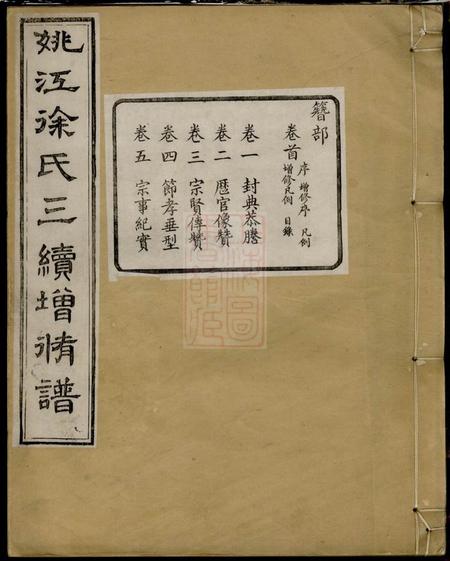 姚江徐氏三續增脩譜
簪部
卷首 序 增修序 凡例
增修凡例 目錄
卷一 封典恭謄
卷二 歷官像贊
卷三 宗賢傳贊
卷四 節孝垂型
卷五 宗事紀實